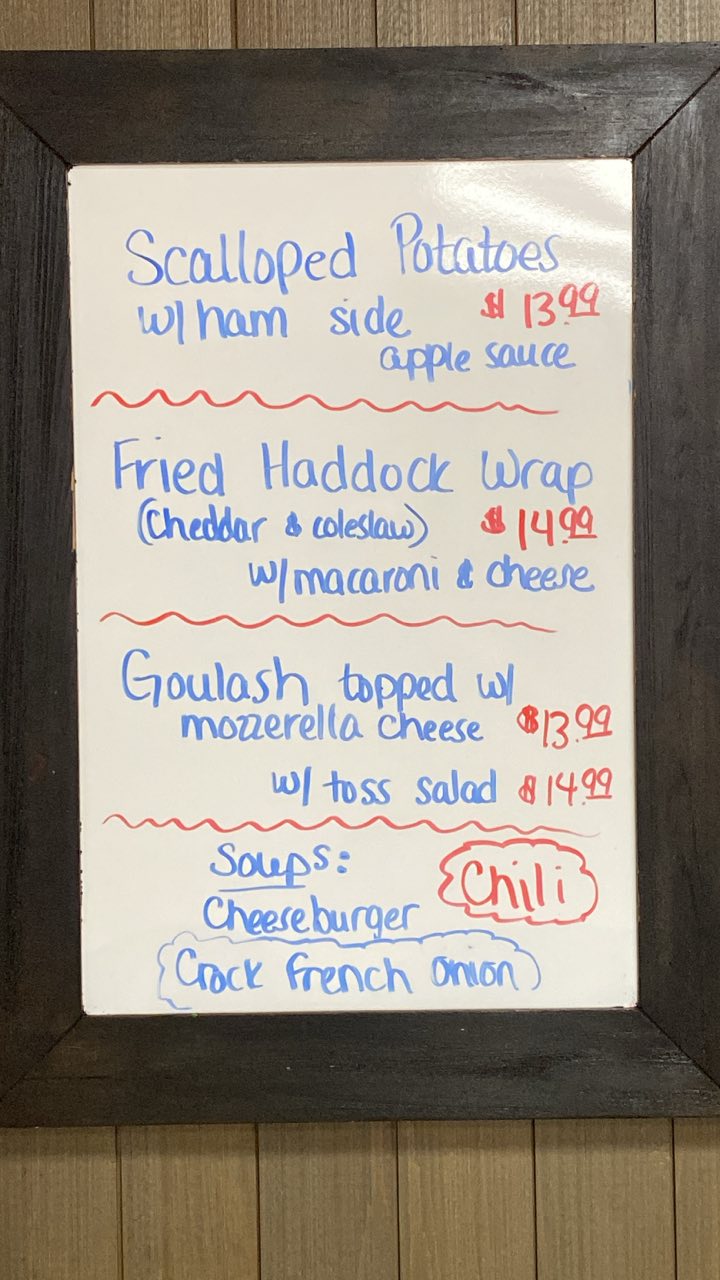 Scalloped Potatoes
w/ ham side $13.99
apple sauce
Fried Haddock Wrap
(Cheddar & coleslaw) $14.99
w/ macaroni & cheese
Goulash topped w/
mozzerella cheese $13.99
w/ toss salad $14.99
Soups:
Chili
Cheeseburger
Crock french onion